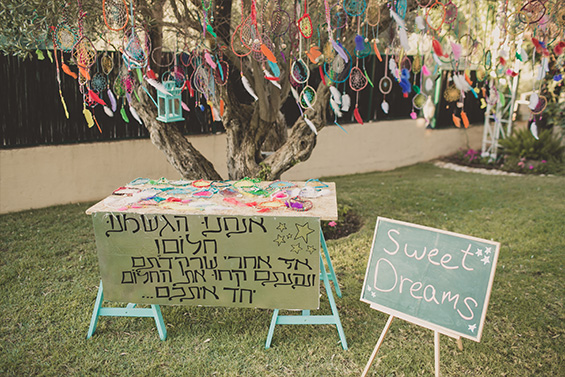 אנחנו הגשמנו
חלום!
אז אחרי שרקדתם
ונהנתם קחו את החלום
יחד איתכם...
Sweet
Dreams